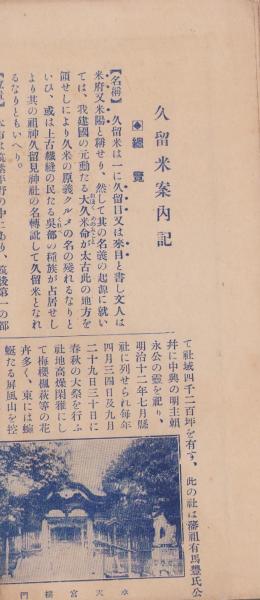 久留米案内記
◆總覽
【名稱】 久留米は一に久留目又は來目と書し文人は
米府又米陽と稱せり、然して其の名義の起源に就い
ては、我建國の元勳たる大久米命が太古此の地方を
領せしにより久米の原義クルメの名の殘れるなりと
いひ、或は上古織縫の民たる呉部の種族が占居せし
より其の祖神久留見神社の名轉訛して久留米となれ
るなりともいへり。
本市は筑紫平野の中にあり、筑後第一の都
て社域四千二百坪を有す、此の社は藩祖有馬豊氏公
幷に中興の明主賴
永公の靈を祀り、
明治十二年七月縣
社に列せられ毎年
四月三四日及九月
二十九日三十日に
春秋の大祭を行ふ
社地高燥閑雅にし
て梅櫻楓萩等の花
卉多く、東には蜿
蜒たる屏風山を控
水天宮樓門